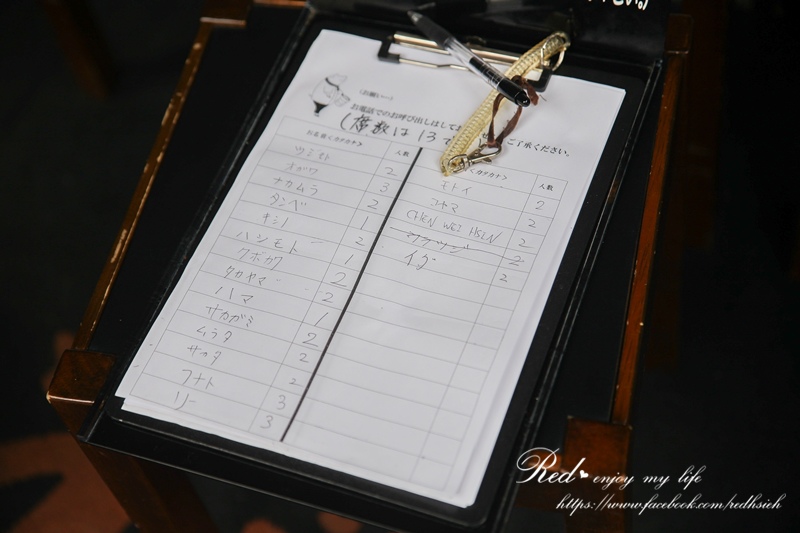 〈お願い〉
お電話でのお呼び出しはしてお
ご了承ください。
(席数は13で
お名前〈カタカナ〉 人数
ツジモト 2
オガワ 3
ナカムラ 2
タンベ 1
キシ 2
ハシモト 1
クボカワ 2
タカヤマ 2
ハマ 1
サカガミ 2
ムラタ 2
サカタ 2
フナト 3
リー 3
〈カタカナ〉 人数
モトイ 2
コヤマ 2
CHEN WEI HSIN 2
イダ 2
Red enjoy my life
https://www.facebook.com/redhsieh